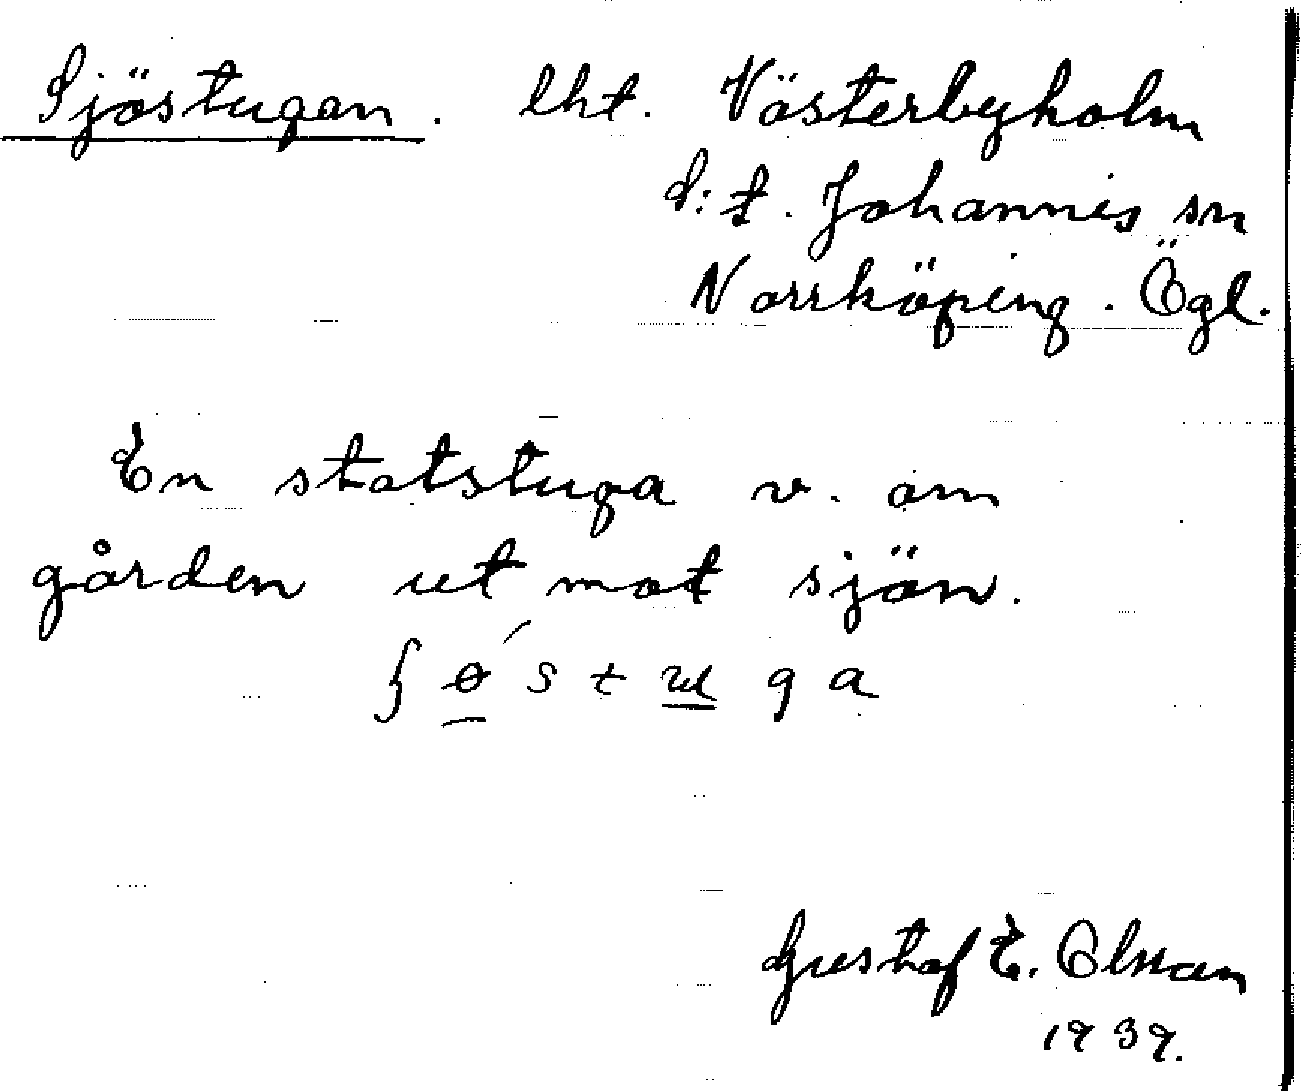 Sjöstugan. lht. Västerbyholm
d:t. Johannis sn
Norrköping. Ögl.
En statstuga v. om
gården ut mot sjön.
ʃ ө́ s t u g a
Gustaf E. Olsson
1939.